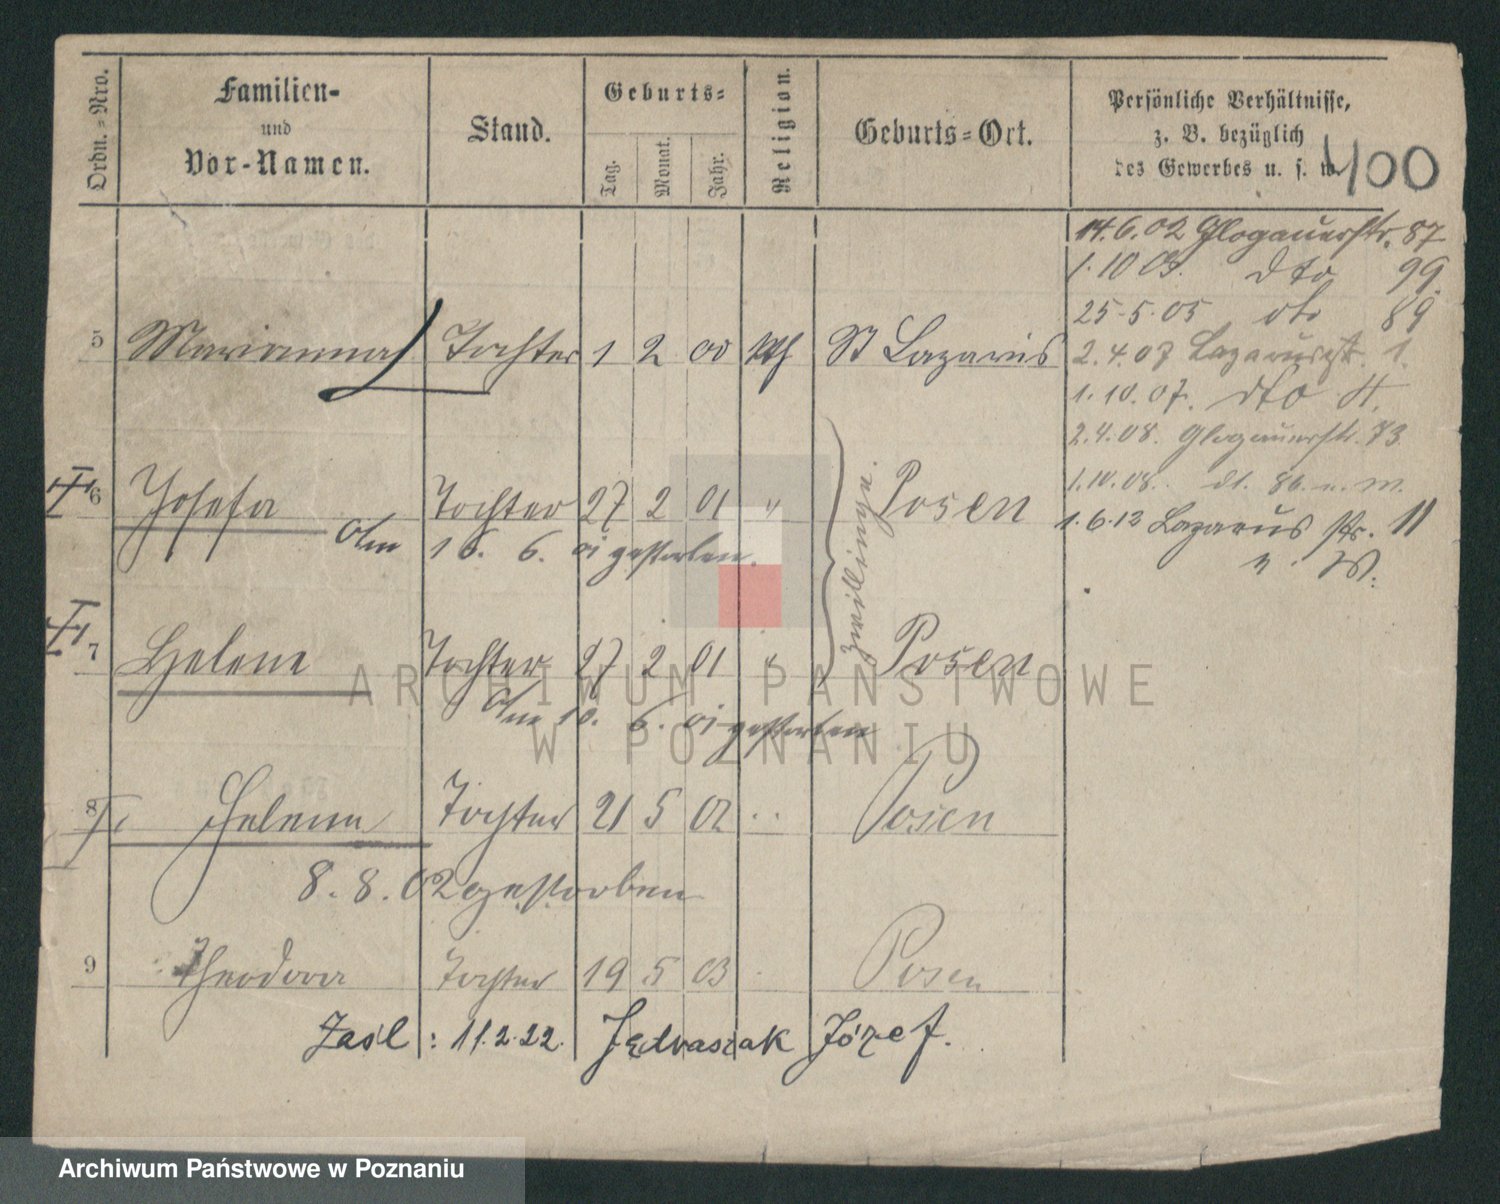 Ordn.-Nro.
Familien-
und
Vor-Namen.
Stand.
Geburts-
Tag.
Monat.
Jahr.
Religion.
Geburts-Ort.
Persönliche Verhältnisse,
z. B. bezüglich
des Gewerbes u. s. w.
400
14.6.02 Glogauerstr. 87
1.10 03. dto 99.
25-5.05 dto 89
5 Marianna Tochter 1 2 00 kth St Lazarus
2.4.07 Lazarusstr. 1.
1.10.07. dto 4.
2.4.08. Glogauerstr. 73
1.10.08. dt. 86. n. W.
6 Josefa Tochter 27 2 01 " Posen
1.6.12 Lazarus str. 11
n. W.
Am 16. 6. 01 gestorben.
Zwillinge.
7 Helene Tochter 27 2 01 " Posen
Am 16. 6. 01 gestorben
8 Helene Tochter 21 5 02 " Posen
8.8.02 gestorben
9 Theodora Tochter 19 5 03 Posen
Zasl: 11.2.22. Jędraszak Józef.
ARCHIWUM PAŃSTWOWE
W POZNANIU
Archiwum Państwowe w Poznaniu